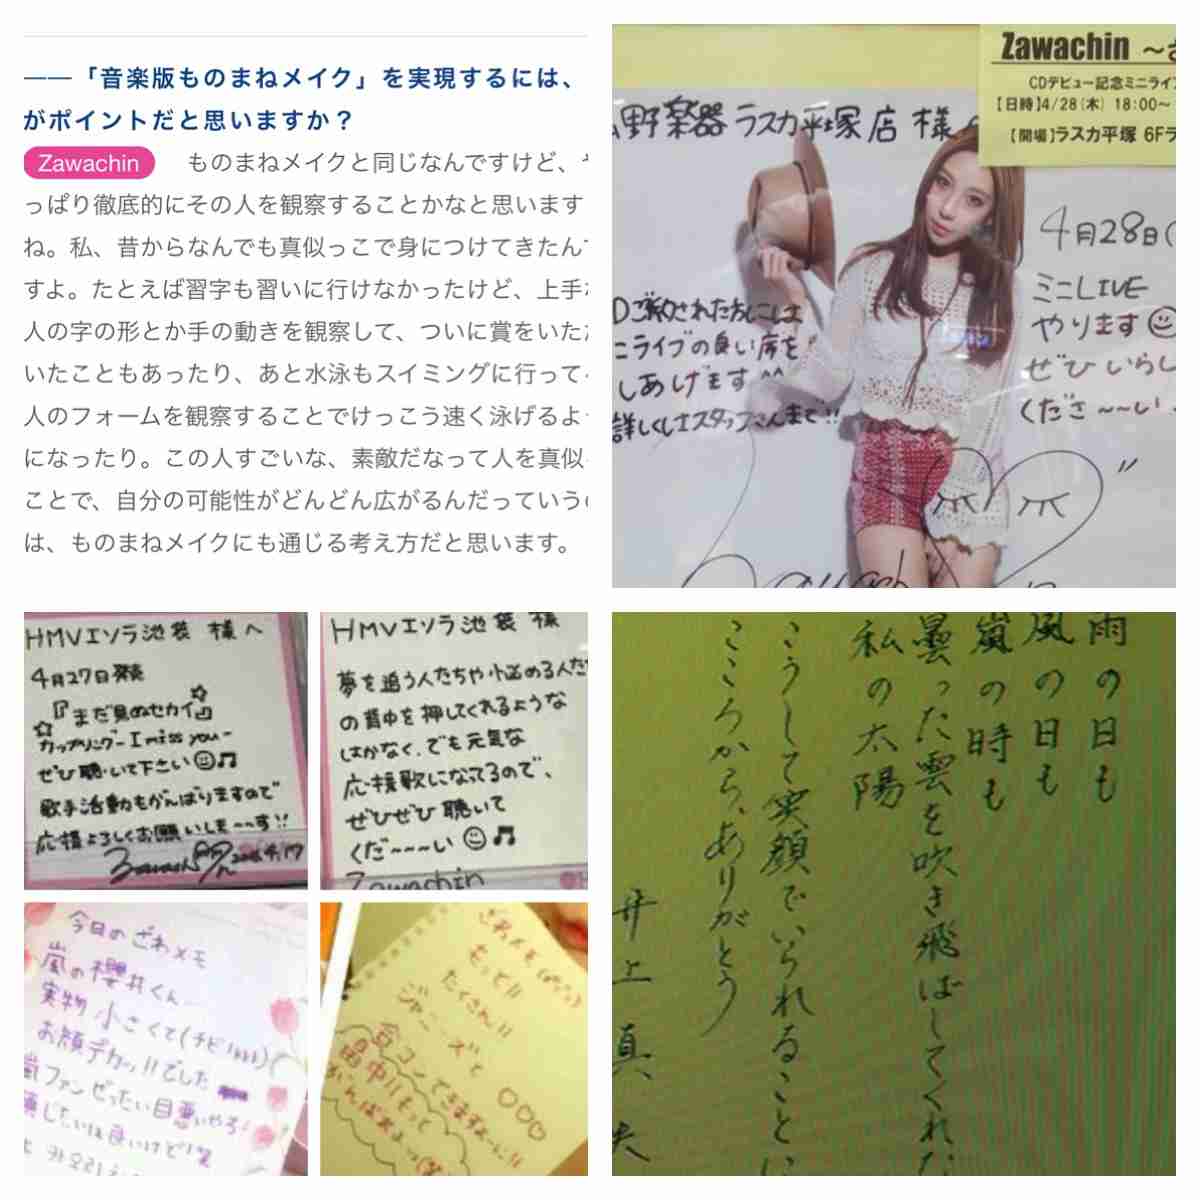 ——「音楽版ものまねメイク」を実現するには、
がポイントだと思いますか？
Zawachin ものまねメイクと同じなんですけど、や
っぱり徹底的にその人を観察することかなと思います
ね。私、昔からなんでも真似っこで身につけてきたんで
すよ。たとえば習字も習いに行けなかったけど、上手な
人の字の形とか手の動きを観察して、ついに賞をいただ
いたこともあったり、あと水泳もスイミングに行って
人のフォームを観察することでけっこう速く泳げるよう
になったり。この人すごいな、素敵だなって人を真似
ことで、自分の可能性がどんどん広がるんだっていうの
は、ものまねメイクにも通じる考え方だと思います。
Zawachin ～
CDデビュー記念ミニライブ
【日時】4/28(木) 18:00～
【開場】ラスカ平塚 6F
野楽器 ラスカ平塚店 様へ
4月28日(
ミニLIVE
やります
ぜひ いらし
くださ～～い
Dご予約された方には
ニライブの良い席を
しあげます^^
詳しくはスタッフさんまで!!
Zawachin
HMVエソラ池袋 様へ
4月27日発売
☆『まだ見ぬセカイ』☆
カップリング-I miss you-
ぜひ聴いて下さい☺♫
歌手活動もがんばりますので
応援よろしくお願いしま～～す!!
Zawachin 2016.4.17
HMVエソラ池袋 様
夢を追う人たちや小悩める人た
の背中を押してくれるような
はかなく、でも元気な
応援歌になってるので、
ぜひぜひ聴いて
くだ～～～い☺♫
Zawachin
今日のざわメモ
嵐の櫻井くん
実物 小さくて(チビ
お顔デカッ!!でした
嵐ファンぜったい目悪いやろ!
ざわメモ
もっと!!
たくさん!!
ジャニーズと
合コンできますよーに!!
昌中!!もっと
がんばれよっ
雨の日も
風の日も
嵐の時も
曇った雲を吹き飛ばしてくれた
私の太陽
こうして笑顔でいられることに
こころから、ありがとう
井上真央